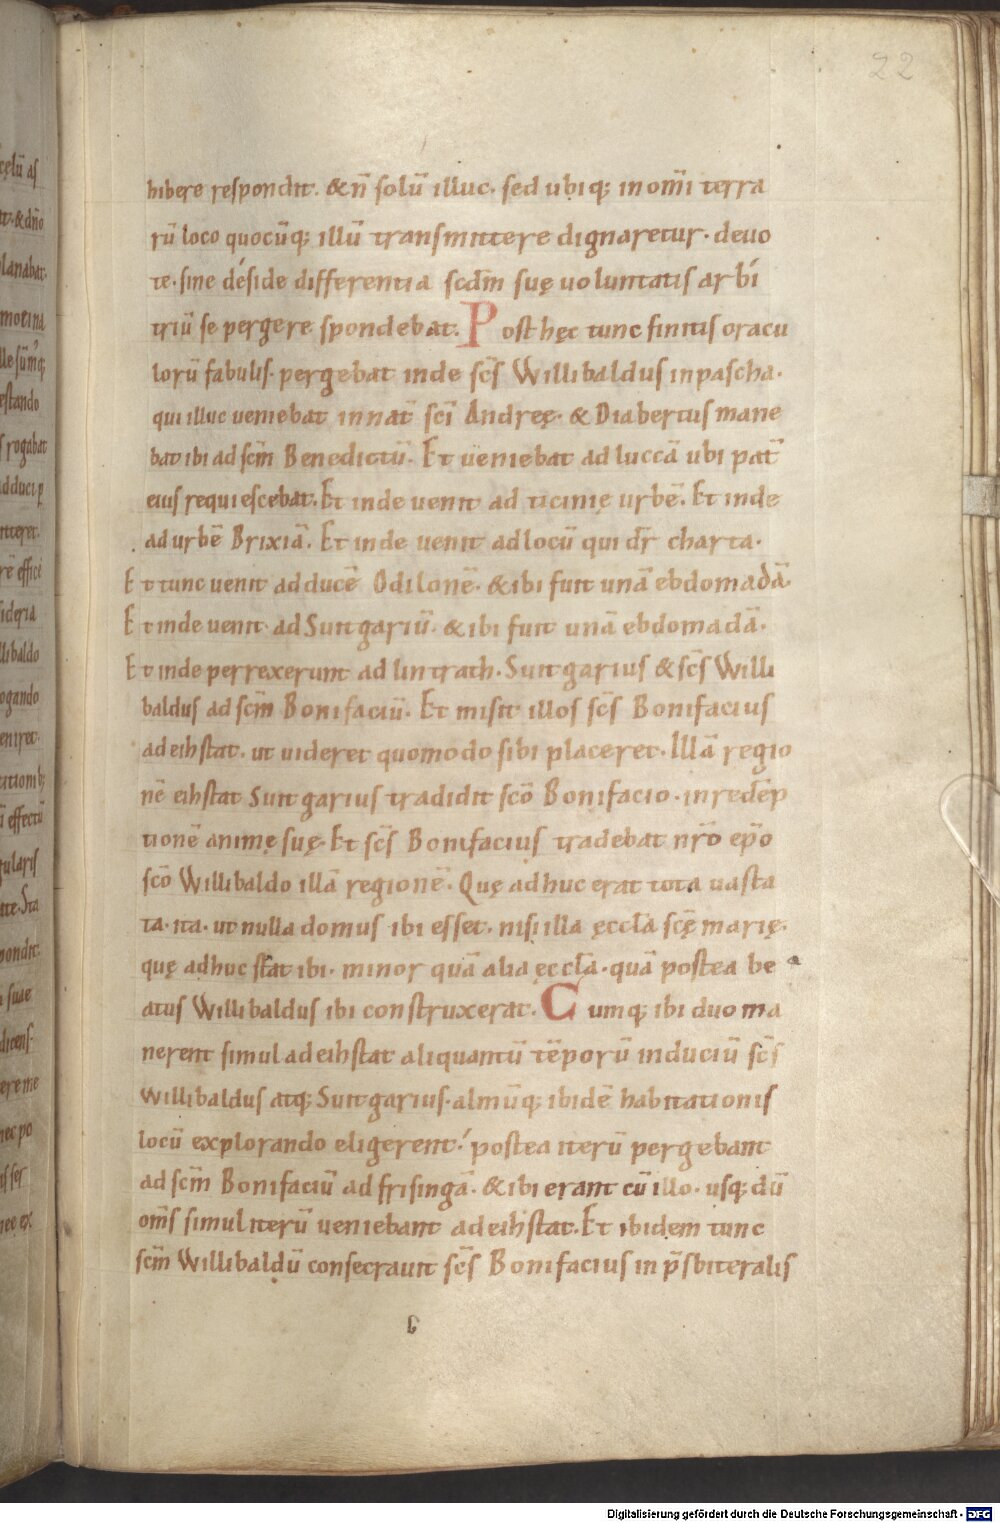 22
hibere respondit. &n̄ solū illuc. sed ubiq; in om̄i terra
rū loco quocūq; illū transmittere dignaretur. deuo
te. sine déside differentia scdm̄ suę uoluntatis arbí
triū se pergere spondebat. Post hęc tunc finitis oracu
lorū fabulis. pergebat inde sc̄s Willibaldus in pascha.
qui illuc ueniebat in nat̄ sc̄i Andreę. & Diabertus mane
bat ibi ad sc̄m Benedictū. Et ueniebat ad luccā ubi pat̄
eius requiescebat. Et inde uenit ad ticinię urbē. Et inde
ad urbē Brixiā. Et inde uenit ad locū qui dr̄ charta.
Et tunc uenit ad ducē Odilonē. & ibi fuit unā ebdomadā.
Et inde uenit ad Suitgariū. & ibi fuit unā ebdomadā.
Et inde perrexerunt ad lintrath. Suitgarius & sc̄s Willi
baldus ad sc̄m Bonifaciū. Et misit illos sc̄s Bonifacius
ad eihstat. ut uideret quomodo sibi placeret. Illā regio
nē eihstat Suitgarius tradidit sc̄o Bonifacio. in redēp
tionē animę suę. Et sc̄s Bonifacius tradebat nr̄o ep̄o
sc̄o Willibaldo illā regionē. Quę adhuc erat tota uasta
ta. ita. ut nulla domus ibi esset. nisi illa ęccła sc̄ę marię.
quę adhuc stat ibi. minor quā alia ęccła. quā postea be
atus Willibaldus ibi construxerat. Cumq; ibi duo ma
nerent simul ad eihstat aliquantū tēporū induciū sc̄s
Willibaldus atq; Suitgarius. almūq; ibidē habitationis
locū explorando eligerent. postea iterū pergebant
ad sc̄m Bonifaciū ad frisingā. & ibi erant cū illo. usq; dū
om̄s simul iterū ueniebant ad eihstat. Et ibidem tunc
sc̄m Willibaldū consecrauit sc̄s Bonifacius in p̄sbiteralis
Digitalisierung gefördert durch die Deutsche Forschungsgemeinschaft - DFG